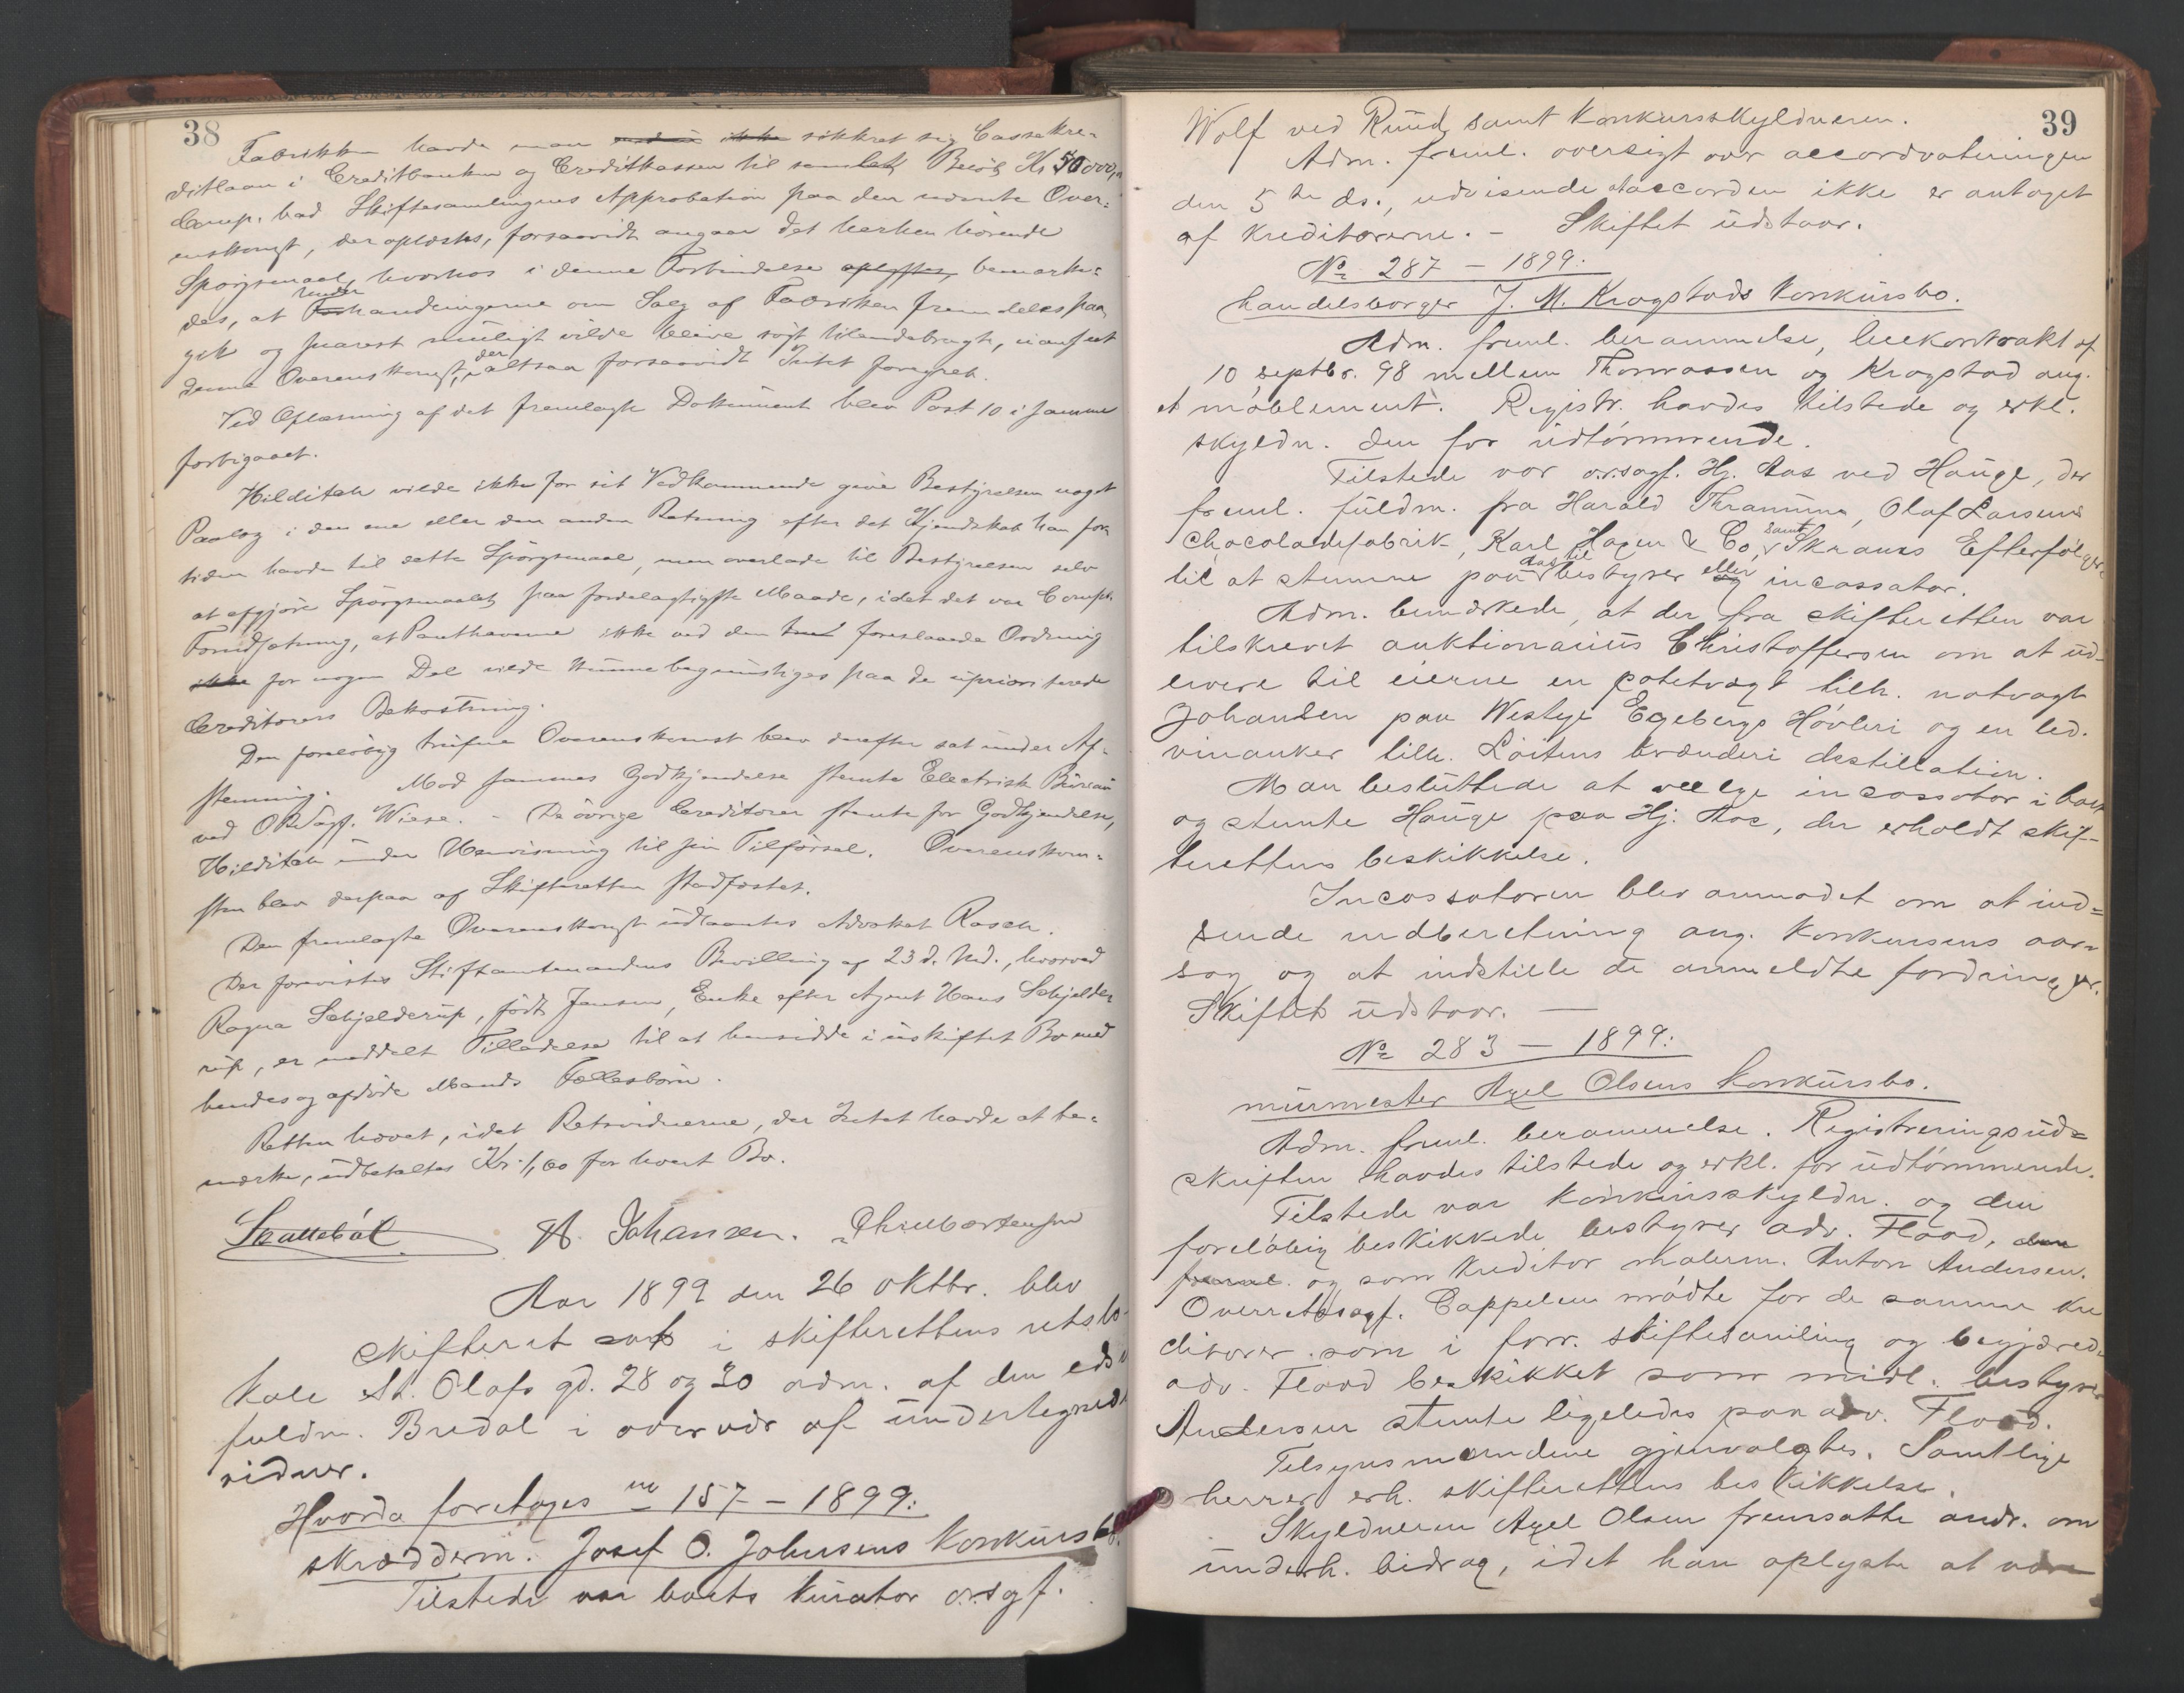 38
Fabrikken havde man sikkret sig Cassekre-
ditlaan i Creditbanken og Creditkassen til samlet Beløb Kr 50000,
Comp. bad Skiftesamlingens Approbation paa den nævnte Over-
enskomst, der oplæstes, forsaavidt angaar det herhen hørende
Spørgsmaal, hvorhos i denne Forbindelse oplystes, bemærke-
des, at Underhandlingerne om Salg af Fabriken fremdeles paa
gik og snarest muligt vilde blive søgt tilendebragt, uanseet
denne Overenskomst, der altsaa forsaavidt Intet foregreb.
Ved Oplæsning af det fremlagte Dokument blev Post 10 i samme
forbigaaet.
Hilditch vilde ikke for sit Vedkommende give Bestyrelsen noget
Paalæg i den ene eller den anden Retning efter det Kjendskab han for
tiden havde til dette Spørgsmaal, men overlade til Bestyrelsen selv
at afgjøre Spørgsmaalet paa fordelagtigste Maade, idet det var Comp.
Forudsætning, at Panthaverne ikke ved den foreslaaede Ordning
ikke for nogen Del vilde kunne begunstiges paa de upriorterede
Creditorers Bekostning.
Den foreløbig trufne Overenskomst blev derefter sat under Af-
stemning. Mod sammes Godkjendelse stemte Electrisk Büreau
ved ORSagf. Wiese. - De øvrige Creditorer stemte for Godkjendelse,
Hilditch under Henvisning til sin Tilførsel. Overenskom-
sten blev derpaa af Skifteretten stadfæstet.
Den fremlagte Overenskomst udlaantes Advokat Rasch.
Der forevistes Stiftamtmandens Bevilling af 23 d. Md., hvorved
Ragna Schjelderup, født Jensen, Enke efter Agent Hans Schjelde-
rup, er meddelt Tilladelse til at hensidde i uskiftet Bo med
hendes og afdøde Mands Fællesbørn.
Retten hævet, idet Retsvidnerne, der Intet havde at be-
mærke, udbetaltes Kr. 1,00 for hvert Bo.
Skattebøl A. Johansen.
Aar 1899 den 26 oktbr. blev
skifteret sat i skifterettens retslo-
kale St. Olafs gd. 28 og 30 adm. af den eds.
fuldm. Bredal i overvær af undertegnede
vidner.
Hvorda foretoges no 157 - 1899:
skrædderm. Josef O. Johnsens Konkursbo.
Tilstede var boets kurator o.r.sgf.
39
Wolf ved Ruud samt Konkursskyldneren.
Adm. freml. oversigt over accordvoteringen
den 5te ds., udvisende at accorden ikke er antaget
af kreditorerne. - Skiftet udstaar.
No 287 - 1899:
handelsborger J. M. Krogstads Konkursbo.
Adm. freml. berammelse, leiekontrakt af
10 septbr. 98 mellem Thorvaasen og Krogstad ang.
et møblement. Registr. havdes tilstede og erkl.
skyldn. den for udtømmende.
Tilstede var o.r.sagf. Hj. Aas ved Hauge, der
freml. fuldm. fra Harald Thramms, Olaf Larsens
chocoladefabrik, Karl Hagen & Co, samt Skrauss Efterfølgere
til at stemme paa Aas til bestyrer eller incassator.
Adm. bemærkede, at der fra skifteretten var
tilskrevet auktionarius Christoffersen om at ud-
levere til eierne en potetvægt tilh. natvagt
Johansen paa Westye Egebergs Høvleri og en led.
vinanker tilh. Løitens brænderi destillation.
Man besluttede at vælge incassator i boet
og stemte Hauge paa Hj. Aas, der erholdt skif-
terettens beskikkelse.
Incassatoren blev anmodet om at ind-
sende indberetning ang. Konkursens aar-
sag og at indstille de anmeldte fordringer.
Skiftet udstaar. —
No 283 - 1899:
murmester Axel Olsens konkursbo.
Adm. freml. berammelse. Registreringsud-
skriften havdes tilstede og erkl. for udtømmende.
Tilstede var konkursskyldn. og den
foreløbig beskikkede bestyrer adv. Flood, den
freml. og som kreditor malerm. Anton Andersen.
Overretssagf. Cappelen mødte for de samme kre
ditorer som i forr. skiftesamling og begjærede
adv. Flood beskikket som midl. bestyrer
Andersen stemte ligeledes paa adv. Flood.
Tilsynsmændene gjenvalgtes. Samtlige
herrer erh. skifterettens beskikkelse.
Skyldneren Axel Olsen fremsatte andr. om
underh. bidrag, idet han oplyste at være